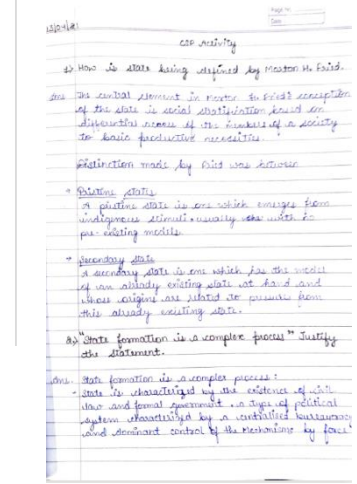 Page No.
Date
CIF Activity
How is state being defined by Morton H. Fried.
ans The central element in Morton H. Fried's conception
of the state is social stratification based on
differential access of the members of a society
to basic productive necessities
Distinction made by Fried was between
Pristine states
A pristine state is one which emerges from
indigenous stimuli, usually with no
pre-existing models.
Secondary state
A secondary state is one which has the model
of an already existing state at hand and
whose origins are related to pressure from
this already existing state.
"State formation is a complex process" Justify
the statement.
ans. State formation is a complex process:
- State is characterized by the existence of civil
law and formal government, a type of political
system characterized by a centralised bureaucracy
and dominant control of the mechanisms by force